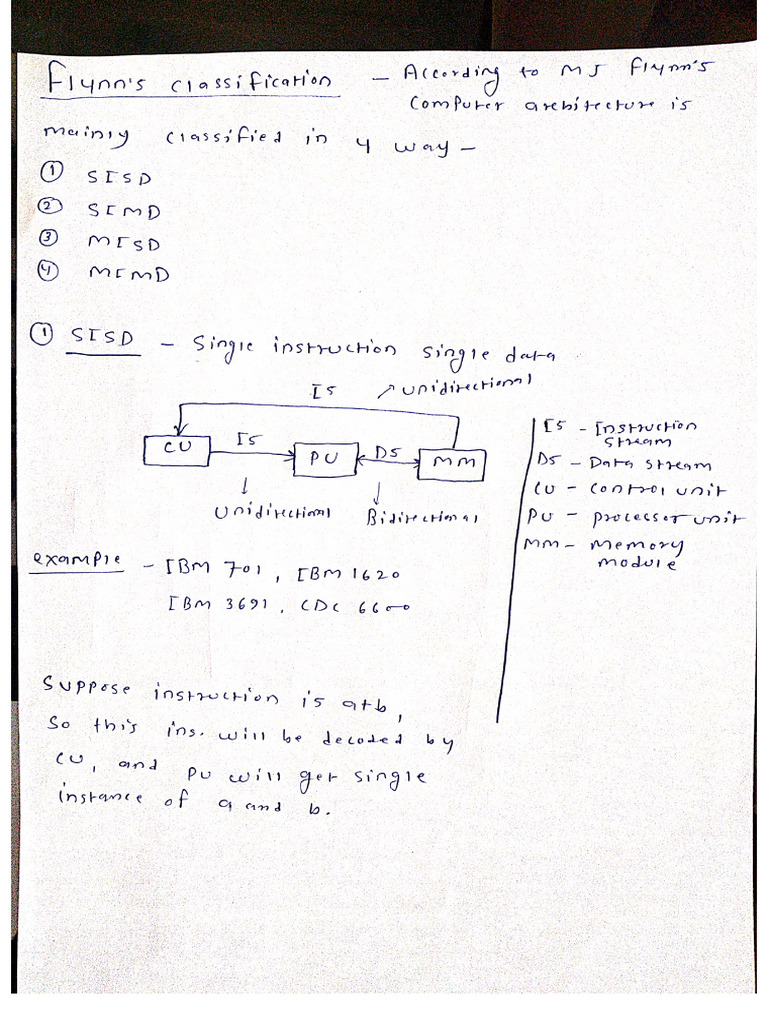 Flynn's classification – According to MJ Flynn's
computer architecture is
mainly classified in 4 way –
① SISD
② SIMD
③ MISD
④ MIMD
① SISD – Single instruction single data
IS ↗ unidirectional
CU IS PU DS MM
↓ ↓
Unidirectional Bidirectional
IS – Instruction
stream
DS – Data stream
CU – control unit
PU – processor unit
MM – memory
module
example – IBM 701, IBM 1620
IBM 3691, CDC 6600
Suppose instruction is a+b,
So this ins. will be decoded by
CU, and PU will get single
instance of a and b.